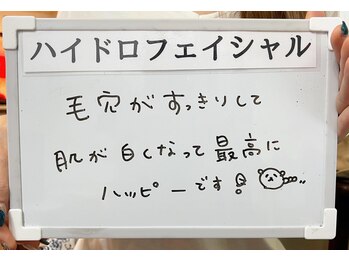 ハイドロフェイシャル
毛穴がすっきりして
肌が白くなって最高に
ハッピーです!